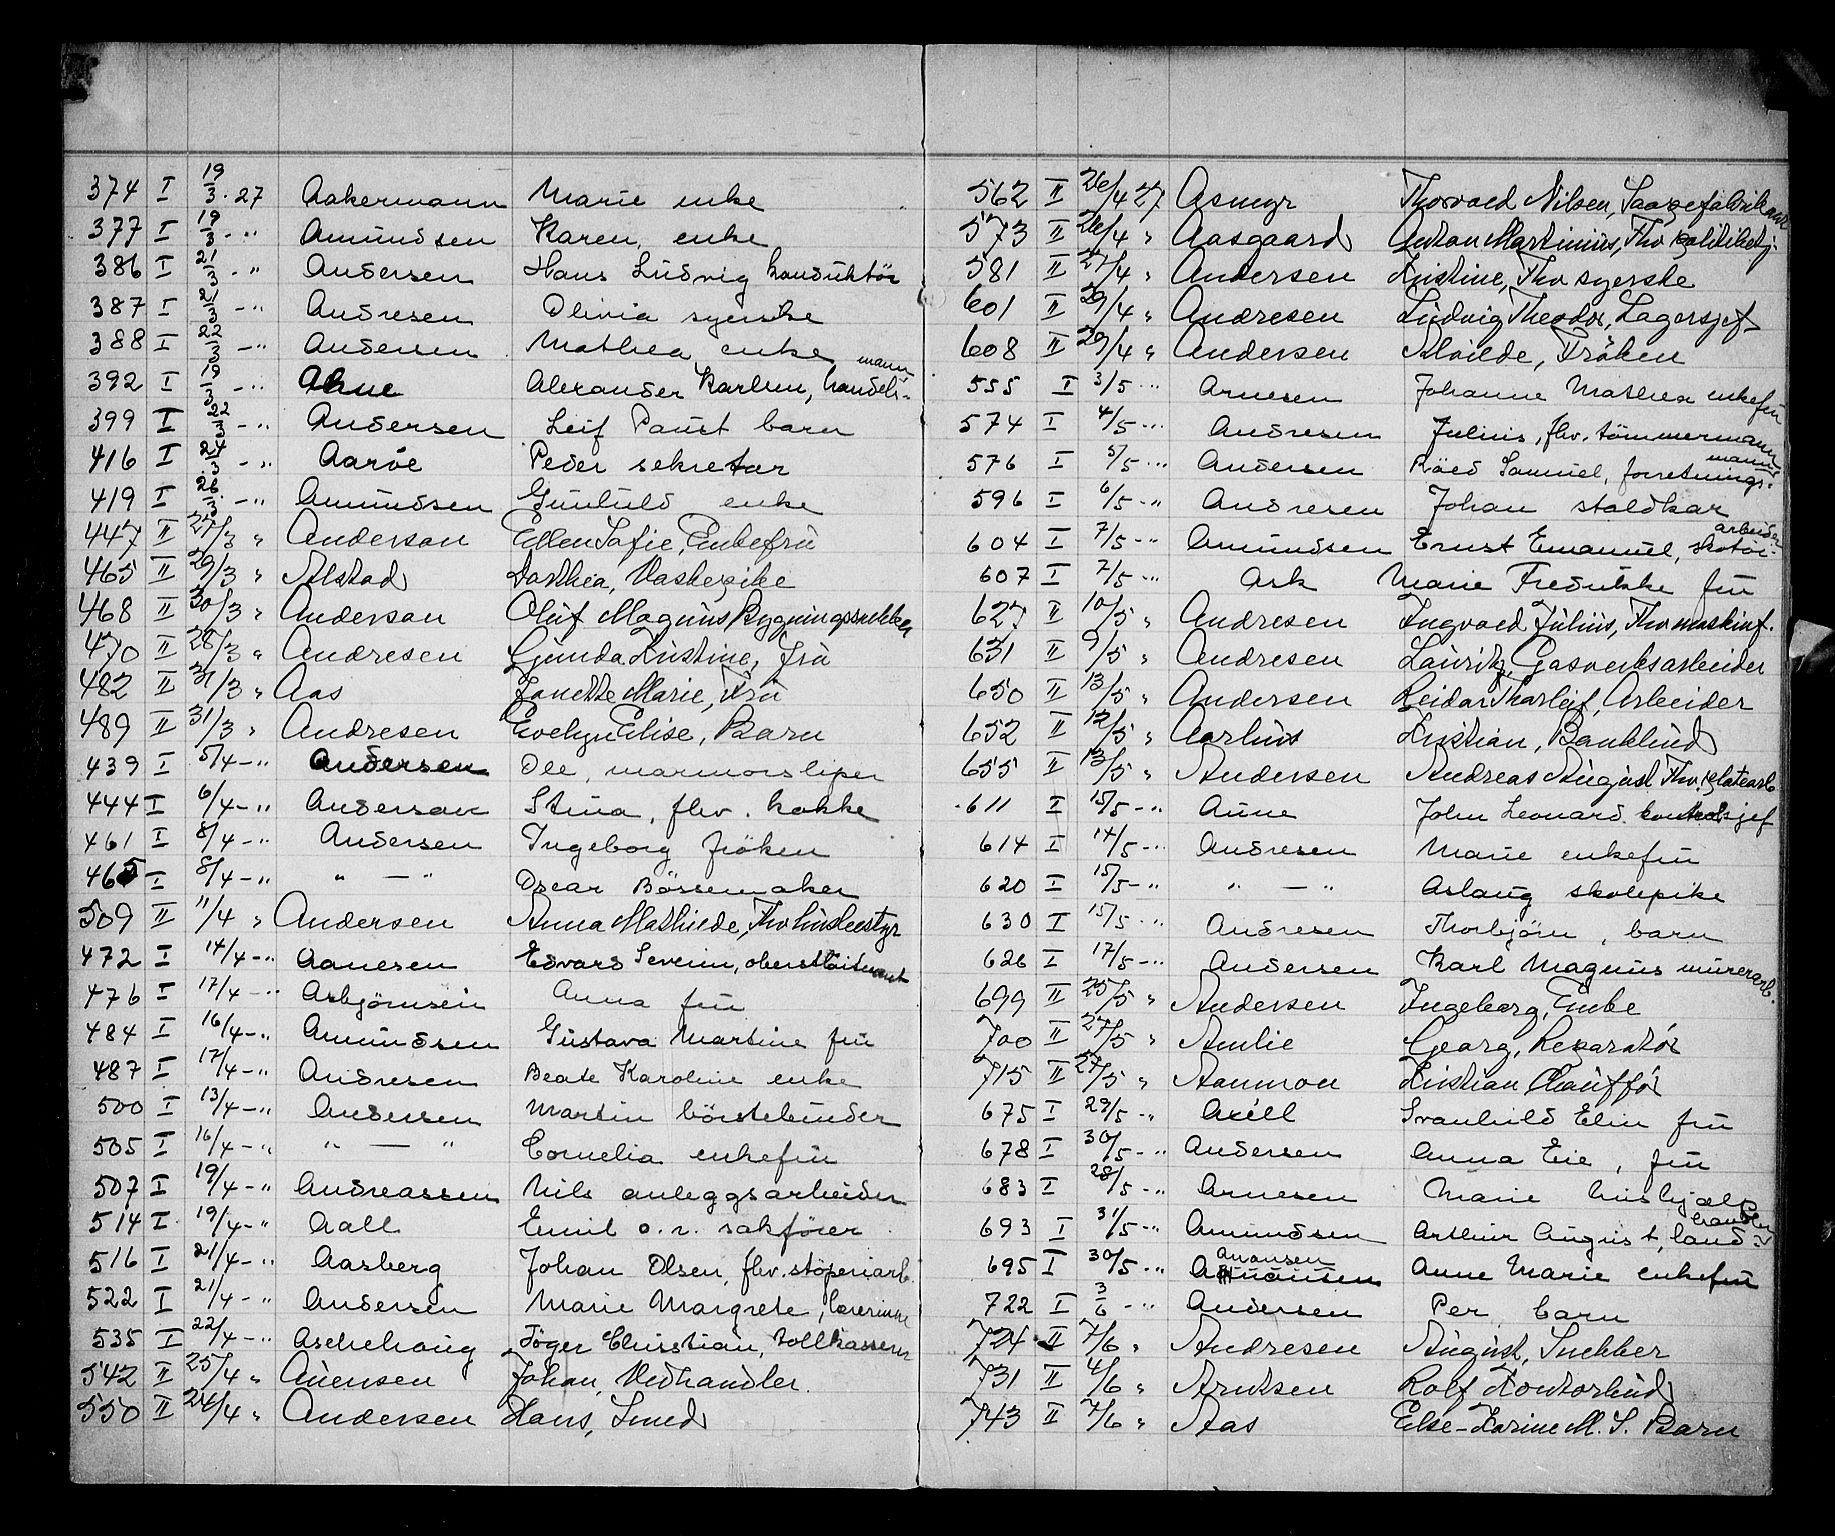 374 I 19/3 · 27 Aakermann Marie enke
377 I 19/3 - " Amundsen Karen, enke
386 I 21/3 - " Andersen Hans Ludvig konduktör
387 I 21/3 - " Andresen Olivia syerske
388 I 22/3 - " Andersen Mathea enke
392 I 19/3 - " Alexander Karlsen, handels- mann
399 I 22/3 - " Andersen Leif Paust barn
416 I 24/3 - " Aaröe Peder sekretær
419 I 26/3 - " Amundsen Gunhild enke
447 II 27/3 " Anderson Ellen Sofie, Enkefru
465 II 29/3 " Alstad Dorthea, Vaskepike
468 II 30/3 " Anderson Oluf Magnus, Bygningssnekker
470 II 28/3 " Andresen Gunda Kristine, Fru
482 II 31/3 " Aas Janette Marie, Fru
489 II 31/3 " Andresen Evelyn Elise, Barn
439 I 5/4 - " Andersen Ole, marmorsliper
444 I 6/4 - " Anderson Stina, fhv. kokke
461 I 8/4 - " Andersen Ingeborg fröken
465 I 8/4 - " " — " Oscar Børsemaker
509 II 11/4 " Andersen Anna Mathilde, Fhv husbestyr
472 I 14/4 - " Aanesen Edvard Severin, oberstløitenant
476 I 17/4 - " Asbjörnsen Anna fru
484 I 16/4 - " Amundsen Gustava Martine fru
487 I 17/4 - " Andresen Beate Karoline enke
500 I 13/4 - " Andersen Martin börstebinder
505 I 16/4 - " " — " Cornelia enkefru
507 I 19/4 - " Andreassen Nils anleggsarbeider
514 I 19/4 - " Aall Emil o.r. sakförer
516 I 21/4 - " Aasberg Johan Olsen, fhv. støperiarb.
522 I 21/4 - " Andersen Marie Margrete, lærerinne
535 I 22/4 - " Aschehoug Jöger Christian, tollkasserer
542 II 25/4 " Auensen Johan, Vedhandler.
550 II 24/4 " Andersen Hans, Smed
562 II 26/4 27 Asmyr Thorvald Nilsen,
573 II 26/4 " Aasgaard Anton Martinius, Fhv politibetj.
581 II 27/4 " Andersen Kristine, Fhv syerske
601 II 29/4 " Andresen Ludvig Theodor, Lagersjef
608 II 29/4 " Andersen Alvilde, Fröken
555 I 3/5 - " Arnesen Johanne Mathea enkefru
574 I 4/5 - " Andresen Julius, fhv. tömmermann
576 I 5/5 - " Andersen Röed Samuel, forretnings- mann
596 I 6/5 - " Andresen Johan staldkar
604 I 7/5 - " Amundsen Ernst Emanuel, skotöi- arbeider
607 I 7/5 - " Ask Marie Fredrikke fru
627 II 10/5 " Andresen Ingvald Julius, Fhv maskinf.
631 II 9/5 " Andresen Lauritz, Gasverksarbeider
650 II 13/5 " Andersen Reidar Thorleif, Arbeider
652 II 12/5 " Aarhus Kristian, Banklud
655 II 13/5 " Andersen Andreas August Fhv. platearb.
611 I 15/5 - " Aune John Leonard kontorsjef
614 I 14/5 - " Andresen Marie enkefru
620 I 15/5 - " " — " Aslaug skolepike
630 I 15/5 - " Andresen Thorbjörn, barn
626 I 17/5 - " Andersen Karl Magnus murerarb.
699 II 25/5 " Andersen Ingeborg, Enke
700 II 27/5 " Amlie Georg, Reparatör
715 II 27/5 " Aamron Kristian Chaufför
675 I 29/5 - " Axéll Svanhild Elin fru
678 I 30/5 - " Andersen Anna Eie, fru
683 I 28/5 - " Arnesen Marie hushjælp
693 I 31/5 - " Amundsen Arthur August, land- handler
695 I 30/5 - " Amundsen Anne Marie enkefru
722 I 3/6 - " Andersen Per barn
724 II 7/6 " Andresen August, Snekker
731 II 4/6 " Arntsen Rolf Kontorbud
743 II 7/6 " Aas Else-Karine M. S. Barn